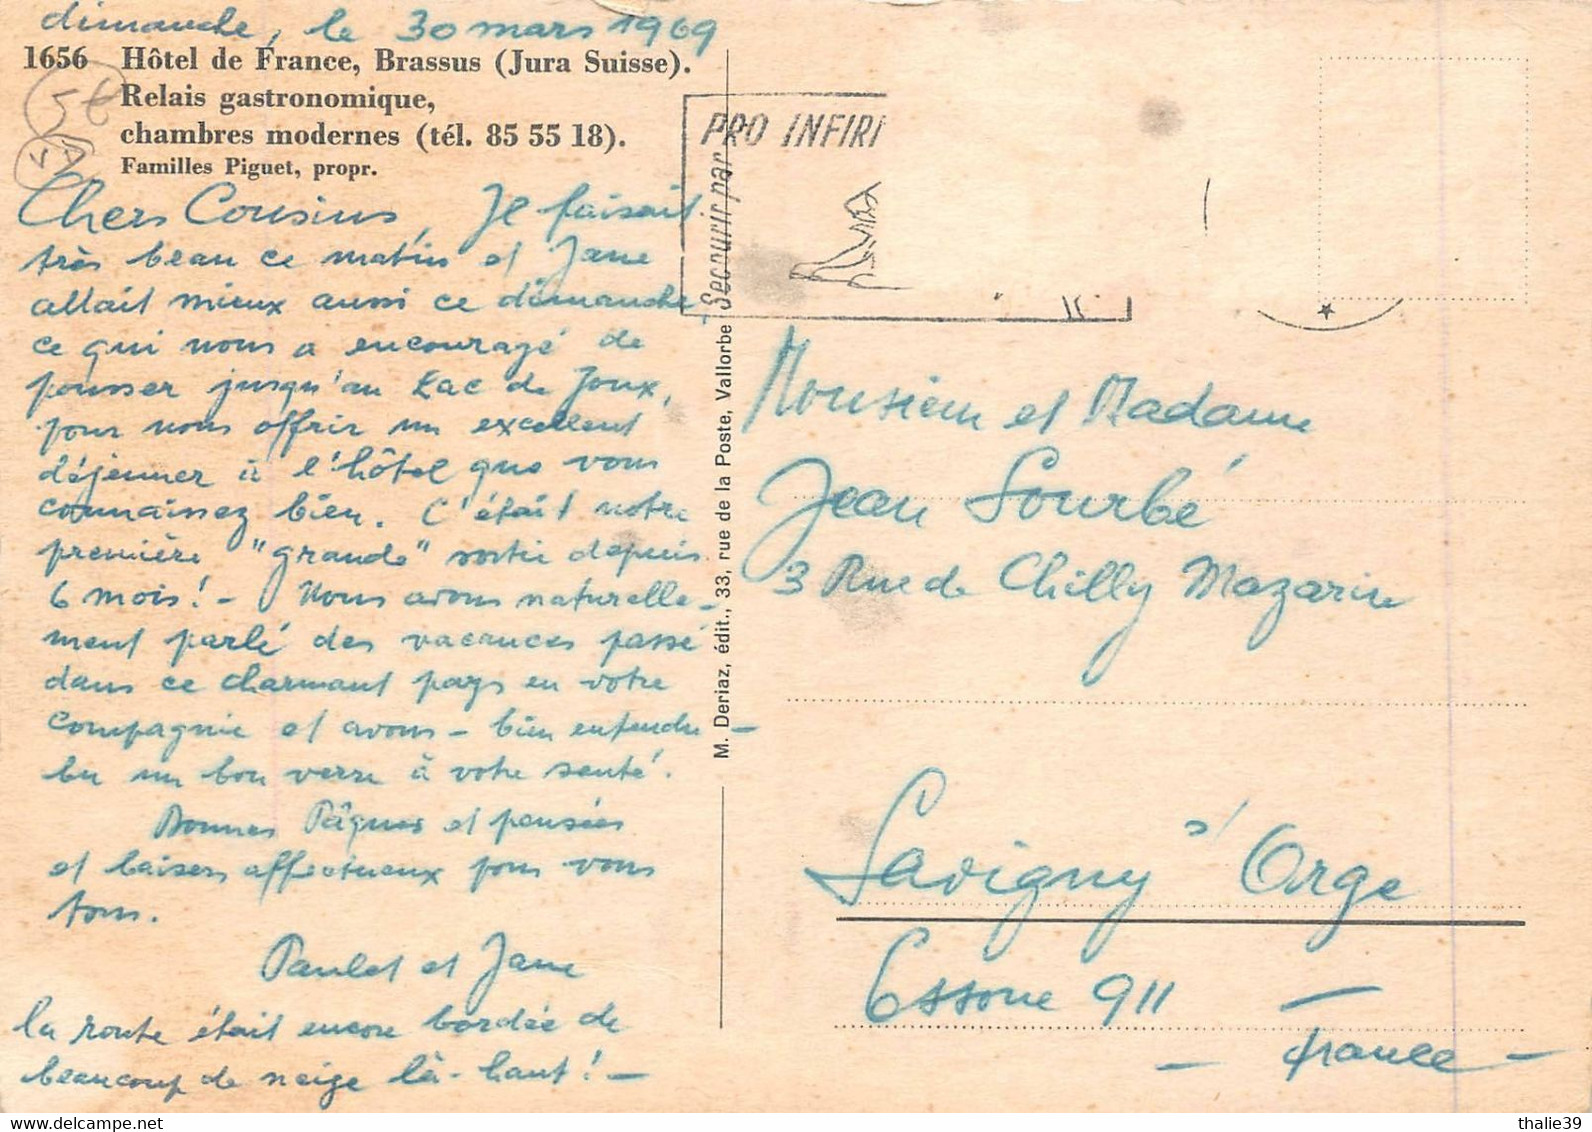 dimanche, le 30 mars 1969
1656 Hôtel de France, Brassus (Jura Suisse).
Relais gastronomique,
chambres modernes (tél. 85 55 18).
Familles Piguet, propr.
5€
Chers Cousins, Il faisait
très beau ce matin et Jane
allait mieux aussi ce dimanche,
ce qui nous a encouragé de
pousser jusqu'au Lac de Joux,
pour nous offrir un excellent
déjeuner à l'hôtel que vous
connaissez bien. C'était notre
première "grande" sortie depuis
6 mois! - Nous avons naturelle-
ment parlé des vacances passé
dans ce charmant pays en votre
compagnie et avons - bien entendu -
bu un bon verre à votre santé.
Bonnes Pâques et pensées
et baisers affectueux pour vous
tous.
Paulet et Jane
la route était encore bordée de
beaucoup de neige là-haut! -
M. Deriaz, édit., 33, rue de la Poste, Vallorbe
PRO INFIRI
Secourir par
Monsieur et Madame
Jean Sourbé
3 Rue de Chilly Mazarin
Savigny s/ Orge
Essone 911
- France -
thalie39